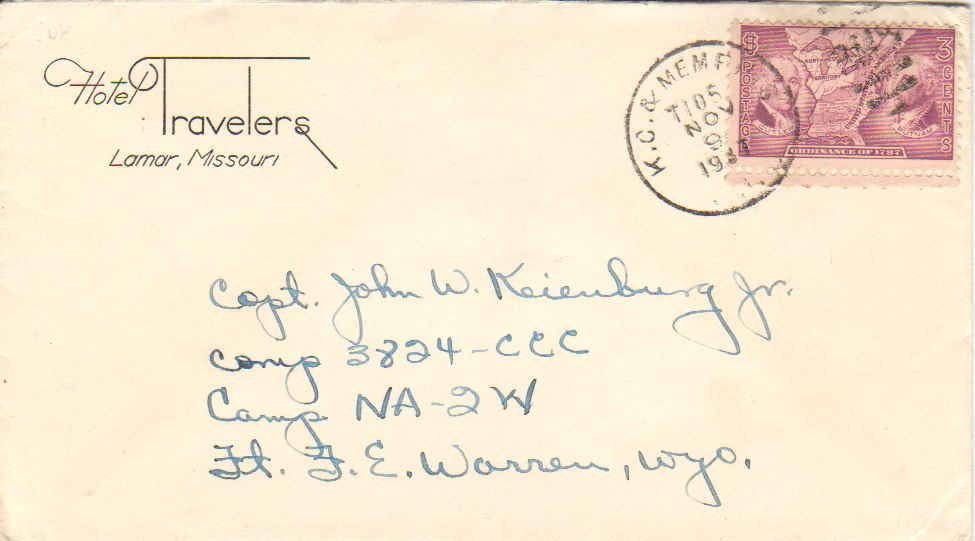 Hotel Travelers
Lamar, Missouri
K.C. & MEMPHIS
T105
NOV
9
1937
POSTAGE
3 CENTS
ORDINANCE OF 1787
Capt. John W. Keienburg Jr.
Comp 3824-CCC
Camp NA-2W
Ft. F. E. Warren, Wyo.